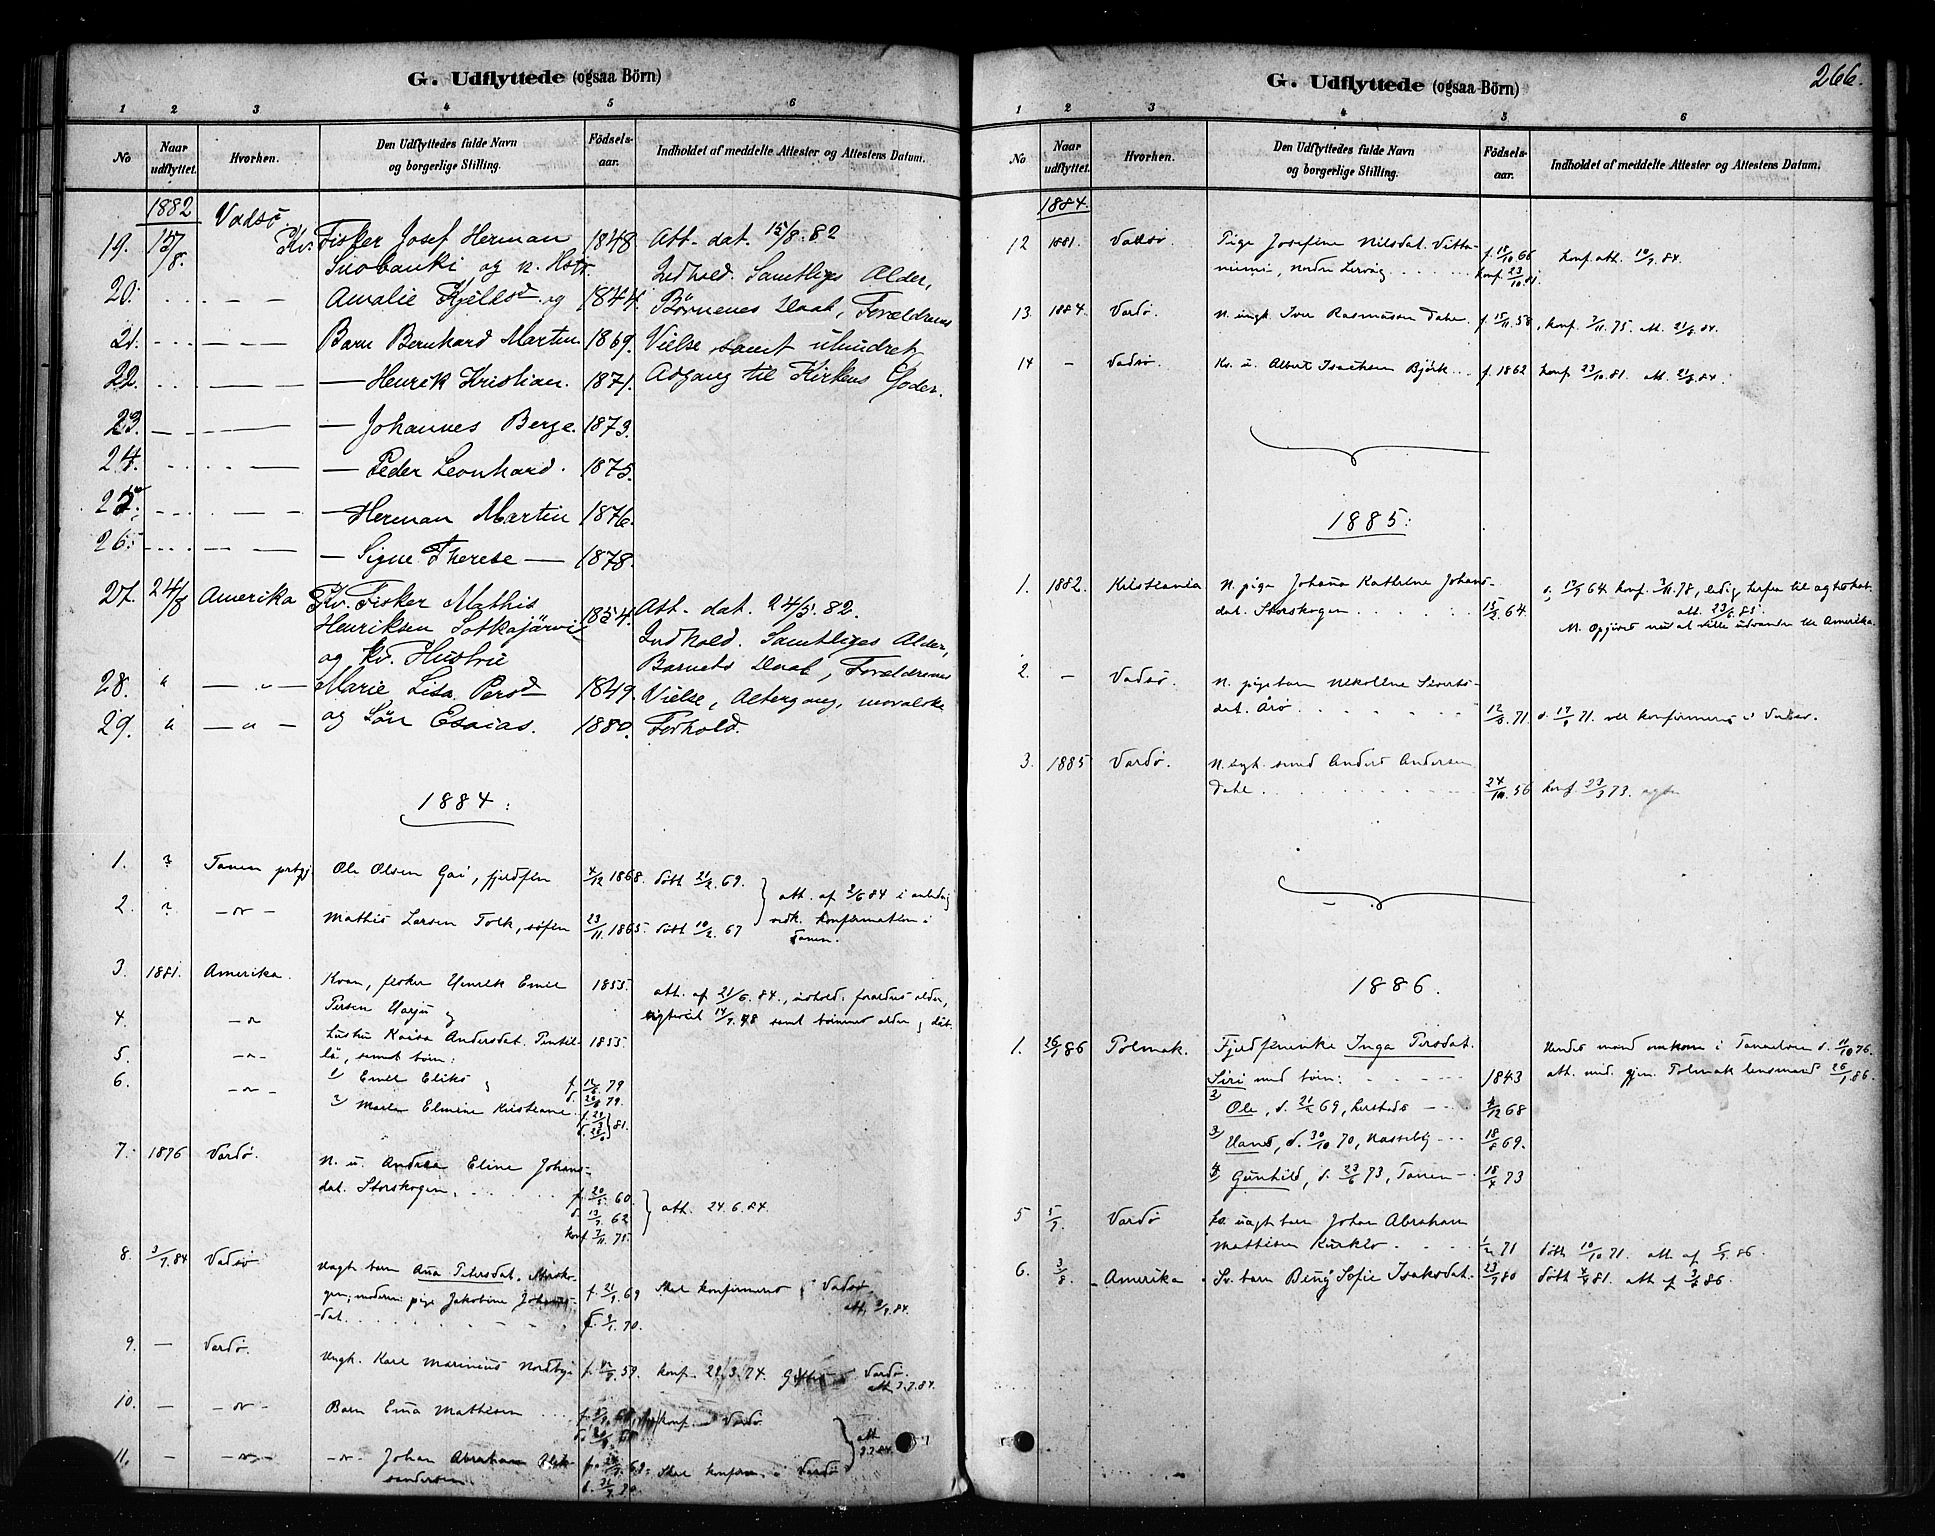 G. Udflyttede (ogsaa Börn)
1 2 3 4 5 6
No Naar udflyttet. Hvorhen. Den Udflyttedes fulde Navn og borgerlige Stilling. Födsels-aar. Indholdet af meddelte Attester og Attestens Datum.
1882 Vadsö
19. 15/8. Kv. Fisker Josef Herman 1848 Att. dat. 15/8. 82
og n. Hstr. Indhold. Samtliges Alder,
20. Amalie Kjellsd og 1844. Börnenes Daab, Forældrenes
21. Barn Bernhard Martin 1869. Vielse samt uhindret
22. — Henrik Kristian. 1871. Adgang til Kirkens Goder.
23. — Johannes Berge. 1873.
24. — Peder Leonhard. 1875.
25. — Herman Martin 1876.
26. — Signe Therese — 1878.
27. 24/8 Amerika Kv. Fisker Mathis 1854. Att. dat. 24/8. 82.
Henriksen Sotkajärvi Indhold. Samtliges Alder,
og kv. Hustru Barnets Daab, Forældrenes
28. " — " — Marie Lisa Persd 1849. Vielse, Altergang, moralske
29. " — " — og Sön Esaias. 1880. Forhold.
1884:
1. ? Tanen prstgj Ole Olsen Gai, fjeldfin 4/12 1868. döbt 21/2. 69. att. af 2/6 84 i anledn
2. ? — " — Mathis Larsen Tolk, söfin 23/11. 1865. döbt 10/2. 67 vedk. konfirmation i
Tanen.
3. 1881. Amerika. Kvæn, fisker Henrik Emil 1853. att. af 21/6. 84., indhold. foraldres alder,
4. — " — Persen Harju og samt börnenes alder og dåb.
hustru Kaisa Andersdat. Pentil- 1855.
5. — " — lä, samt börn:
6. — " — 1) Emil Eliks og
2) Maria Elmine Kristiane. 81.
7. 1876 Vardö. N. u. Andrea Eline Johans-
dat. Storskogen. f. 20/5. 60
d. 13/7. 62 att. 24.6.84.
konf 7/11. 75.
8. 3/7. 84 Vadsö Uägt barn Ana Petersdat.
gen, moderen pige Jakobine Johans- f. 21/9. 69 Skal konfirmeres i Vadsö.
dat. att. 3/7. 84.
9. — Vardö. Ungk. Karl Marinius Nordby konf. 29.3.74. Vardö.
att 3.7.84.
10. — — " — Barn Ema Mathisen konf. i Vardö
att
11. — — " — — " — Johan Abraham Alek- Skal konfirm. i Vardö 3.7.84.
sandersen.
G. Udflyttede (ogsaa Börn) 266.
1 2 3 4 5 6
No Naar udflyttet. Hvorhen. Den Udflyttedes fulde Navn og borgerlige Stilling. Födsels-aar. Indholdet af meddelte Attester og Attestens Datum.
1884.
12 1881. Vadsö Pige Josefine Nilsdat. Vitta- f. 15/10. 66 konf. att. 10/7. 84.
niemi, Nordre Leirvåg konf. 23/10. 81.
13. 1884. Vardö. N. ungk. Iver Rasmussen Dahl. f. 15/11. 58, konf. 7/11. 75. att. 21/8. 84.
14 — Vadsö. Kv. u. Albert Isachsen Björk f. 1862 konf. 23/10. 81. att. 21/8. 84.
1885:
1. 1882. Kristiania N. pige Johana Kathrine Johans- d. 17/4 64. konf. 7/11. 78, ledig herfra til ægteskab.
dat. Storskogen 15/2. 64 att. 23/6. 85.
N. Opgives nu at ville udvandre til Amerika.
2. — Vadsö. N. pigebarn Nikoline Sivert-
dat. Arö 12/3. 71. d. 17/9 71. vil konfirmeres i Vadsö.
3. 1885 Vardö. N. ungk. smed Anders Andersen
Dahl 24/10. 56 konf. 23/3 73.
1886.
1. 26/1 86 Polmak. Fjeldfinenke Inga Persdat. Hendes mand omkom i Tanaelven d. 11/10 76.
Siri med börn: 1843 att. med. gjen. Polmak lensmand 26/1. 86.
2) Ole, d. 21/2 69, 4/12 68
3) Hans, d. 30/10 70, Nasseby 18/8 69.
4) Gunhild, d. 23/6 73, Tanen 18/4 73
5 5/7. Vardö kv. uägt barn Johan Abraham
Mathisen Kurkio 1/2 71 döbt 10/10 71. att. af 5/7. 86.
6. 3/8. Amerika Kv. barn Beng Sofie Isaksdat. 23/9 80 döbt 4/9 81. att af 3/8 86.